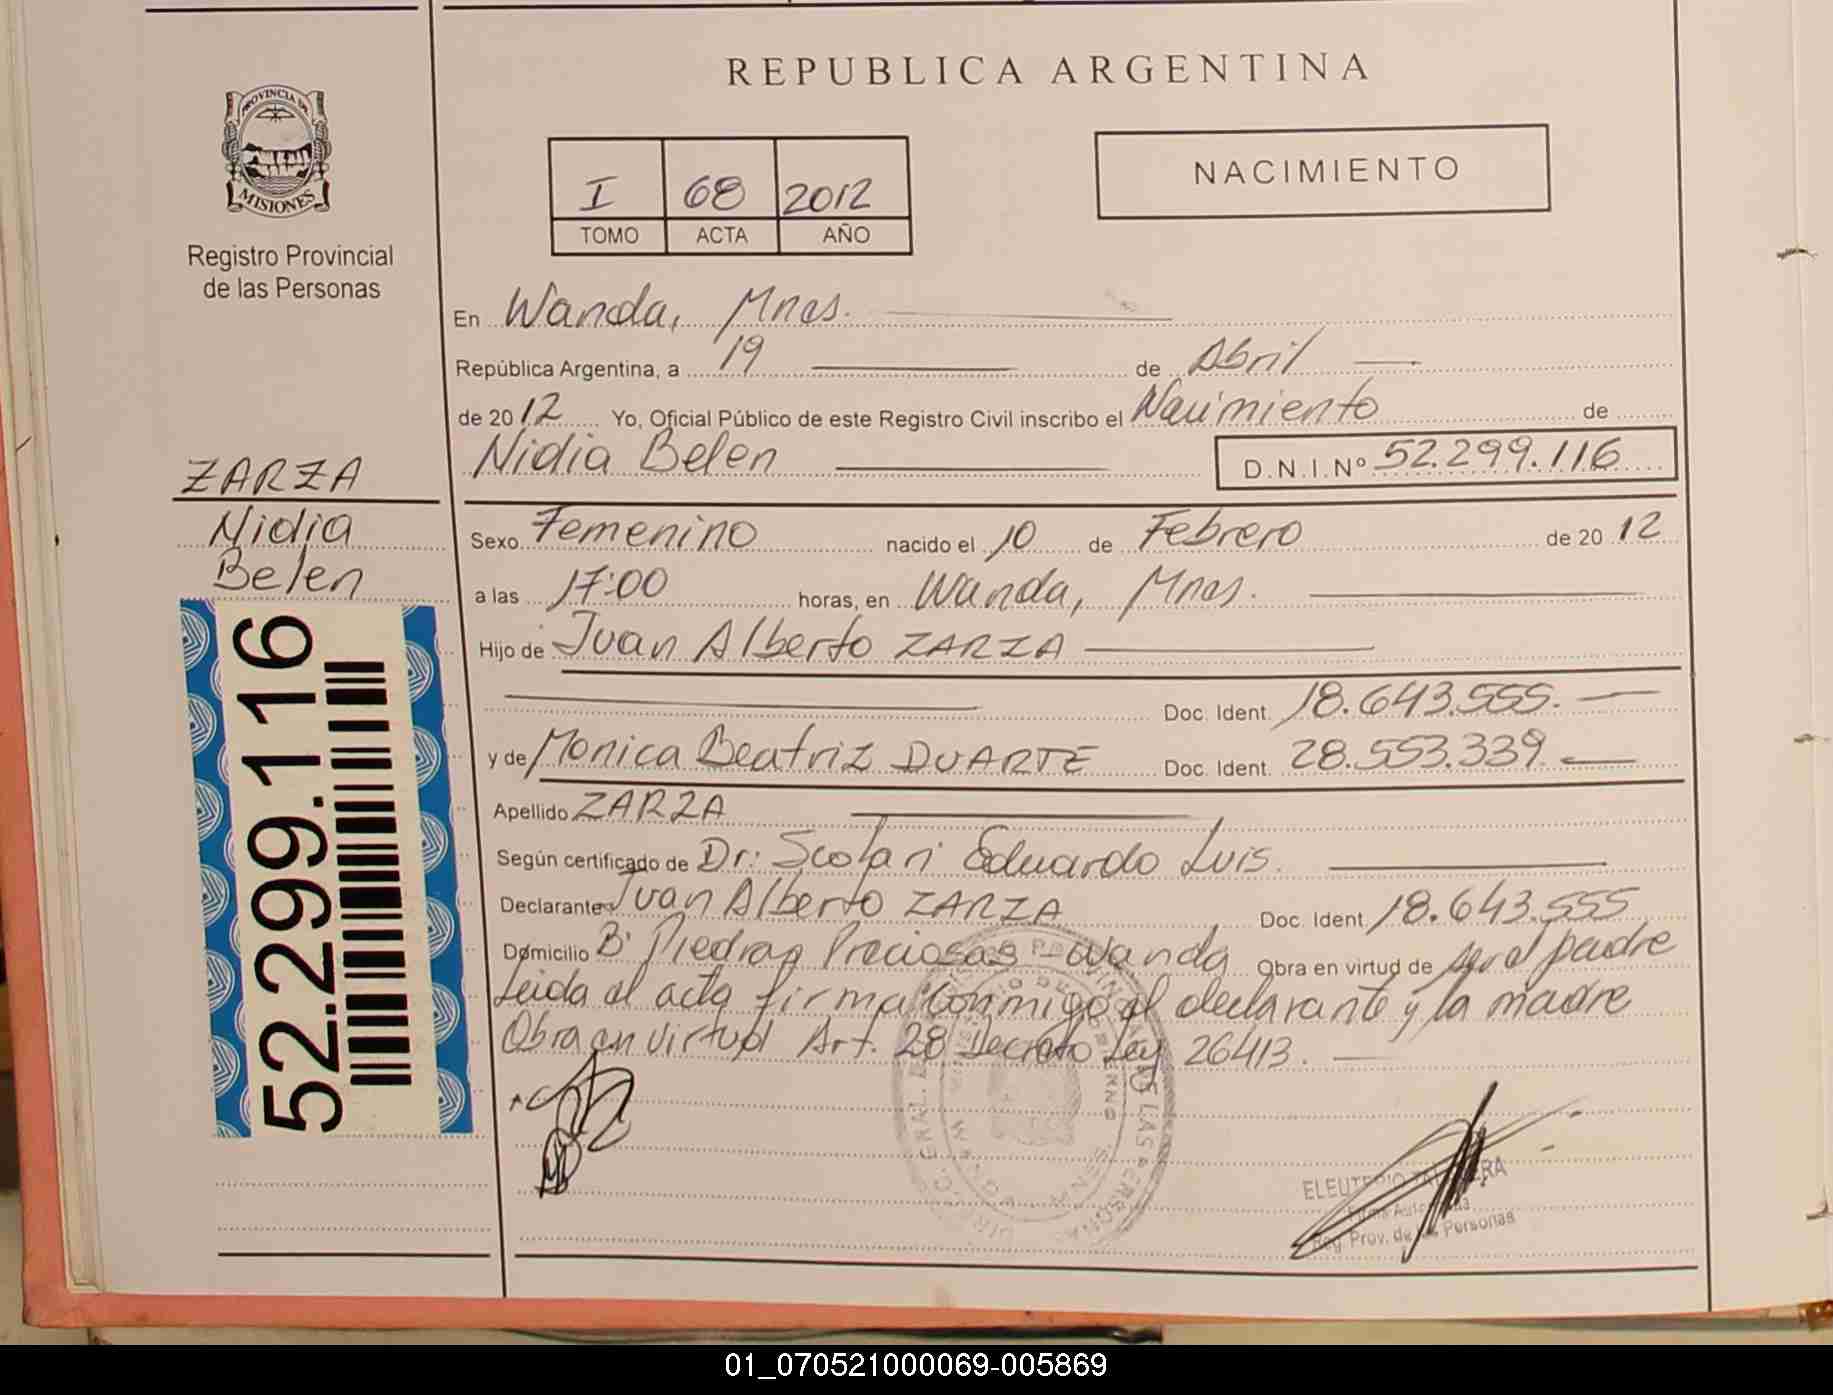 REPUBLICA ARGENTINA
PROVINCIA DE
MISIONES
Registro Provincial
de las Personas
I 68 2012
TOMO ACTA AÑO
NACIMIENTO
En Wanda, Mnes.
República Argentina, a 19 de Abril
de 2012 Yo, Oficial Público de este Registro Civil inscribo el Nacimiento de
Nidia Belen D.N.I.Nº 52.299.116
ZARZA
Nidia
Belen
52.299.116
Sexo Femenino nacido el 10 de Febrero de 2012
a las 17:00 horas, en Wanda, Mnes.
Hijo de Juan Alberto ZARZA
Doc. Ident. 18.643.555.
y de Monica Beatriz DUARTE Doc. Ident. 28.553.339.
Apellido ZARZA
Según certificado de Dr: Scolari Eduardo Luis.
Declarante Juan Alberto ZARZA Doc. Ident. 18.643.555
Domicilio Bº Piedras Preciosas - Wanda Obra en virtud de ser el padre
Leida el acta firma conmigo el declarante y la madre
Obra en virtud Art. 28 Decreto Ley 26413.
ELEUTERIO
Reg. Prov. de las Personas
01_070521000069-005869